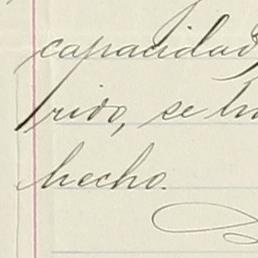 capacidad,
rido, se ha
hecho.